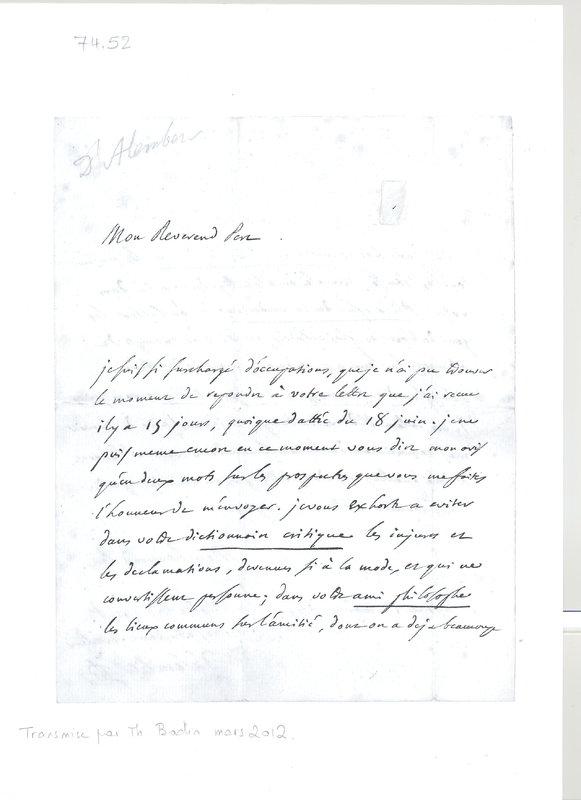 74.52
D'Alembert
Mon Reverend Pere
je suis si surchargé d'occupations, que je n'ai pu trouver
le moment de repondre à votre lettre que j'ai recue
il y a 15 jours, quoique dattée du 18 juin. je ne
puis meme encore en ce moment vous dire mon avis
qu'en deux mots sur les prospectus que vous me faites
l'honneur de m'envoyer. je vous exhorte a eviter
dans votre dictionnaire critique les injures et
les declamations, devenues si à la mode, et qui ne
convertissent personne; dans votre ami philosophe
les lieux communs sur l'amitié, dont on a deja beaucoup
Transmise par Th Bodin mars 2012.